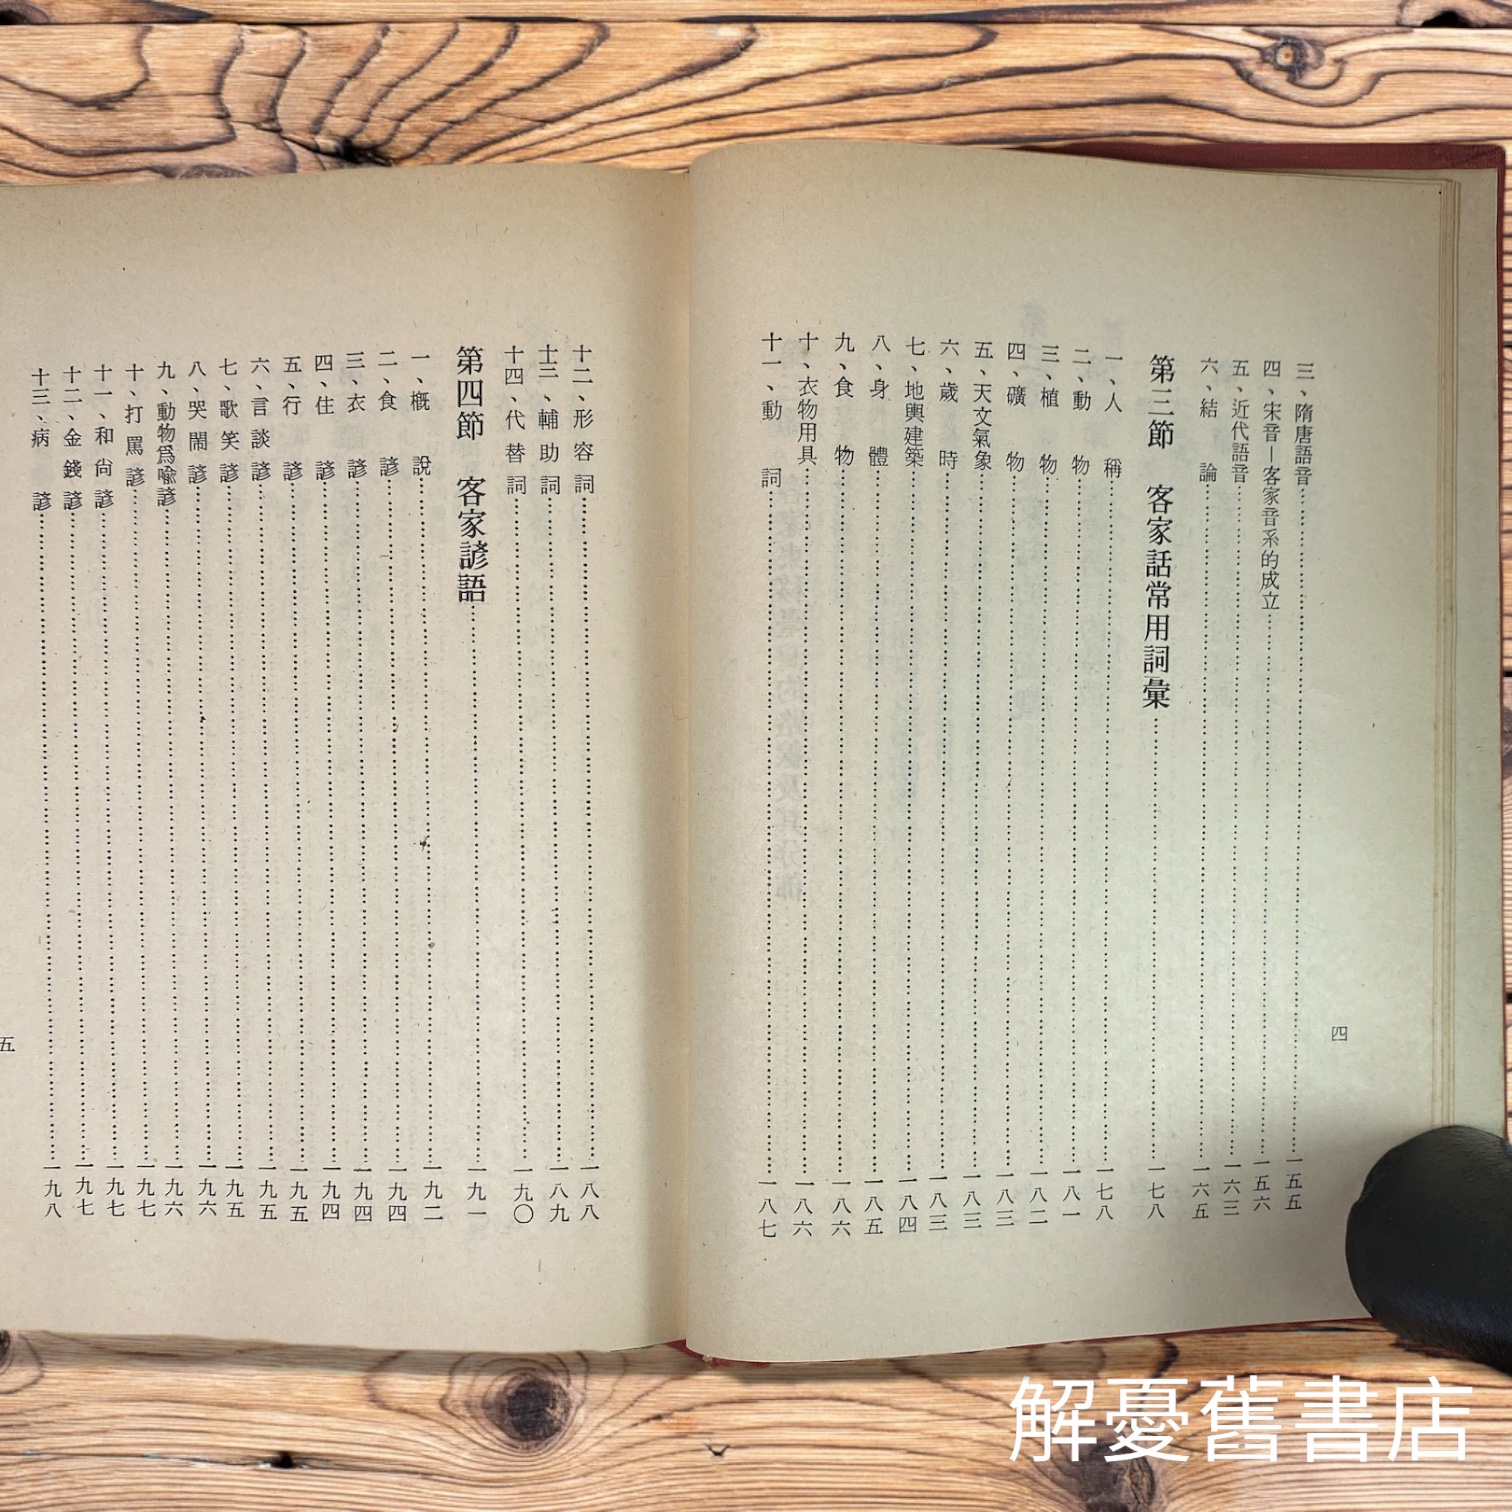 四
三、隋唐語音……一五五
四、宋音—客家音系的成立……一五六
五、近代語音……一六三
六、結論……一六五
第三節　客家話常用詞彙……一七八
一、人稱……一七八
二、動物……一八一
三、植物……一八二
四、礦物……一八三
五、天文氣象……一八三
六、歲時……一八三
七、地輿建築……一八四
八、身體……一八五
九、食物……一八六
十、衣物用具……一八六
十一、動詞……一八七
十二、形容詞……一八八
十三、輔助詞……一八九
十四、代替詞……一九〇
第四節　客家諺語……一九一
一、概說……一九二
二、食諺……一九四
三、衣諺……一九四
四、住諺……一九四
五、行諺……一九五
六、言談諺……一九五
七、歌笑諺……一九五
八、哭鬧諺……一九六
九、動物爲喩諺……一九六
十、打罵諺……一九七
十一、和尙諺……一九七
十二、金錢諺……一九七
十三、病諺……一九八
五
解憂舊書店